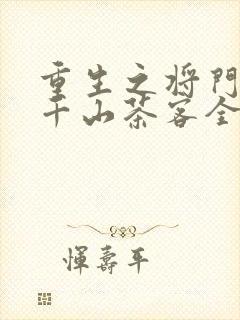 重生之将門
千山茶客全
惲壽平